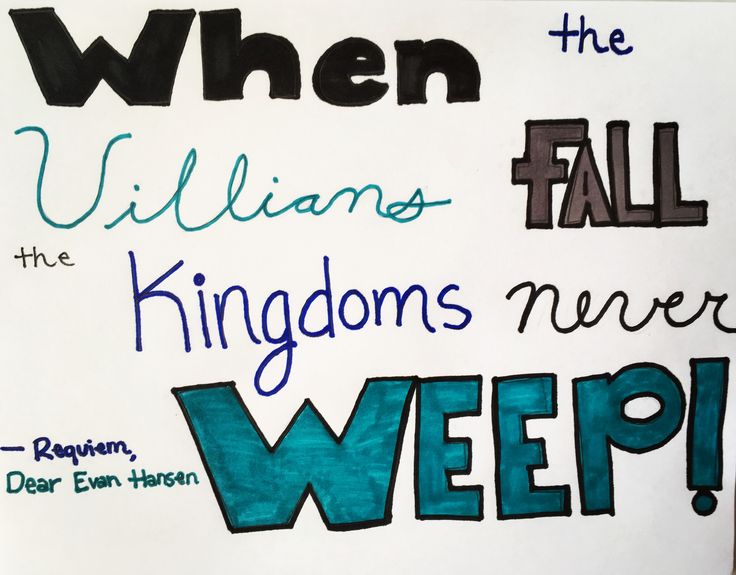 When the
Villians FALL
the Kingdoms never
WEEP!
— Requiem,
Dear Evan Hansen